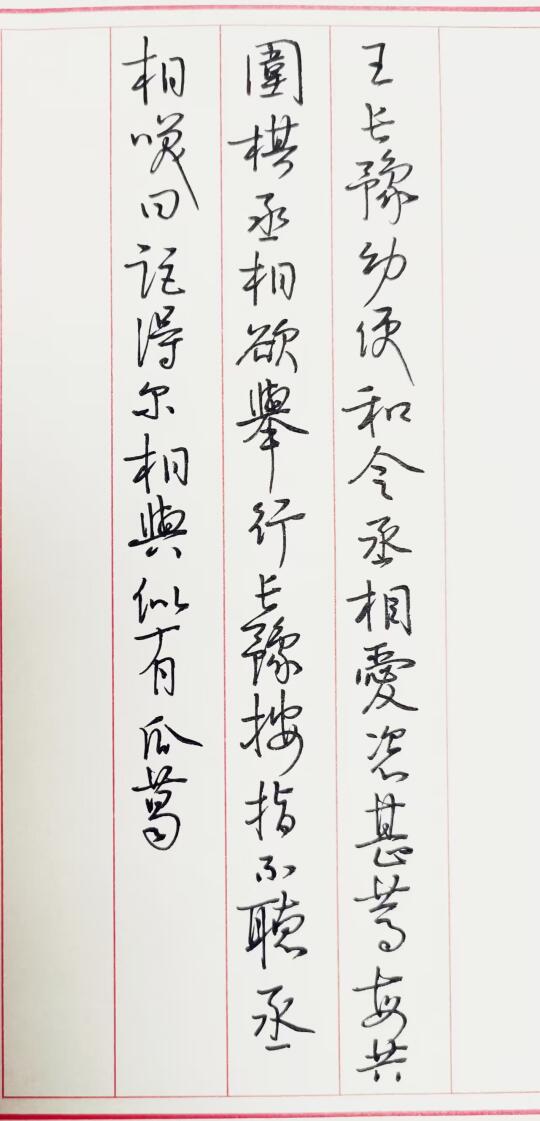 王长豫幼便和令丞相愛恣甚篤每共
圍棋丞相欲舉行长豫按指不聽丞
相唉曰詎得尔相與似有瓜葛